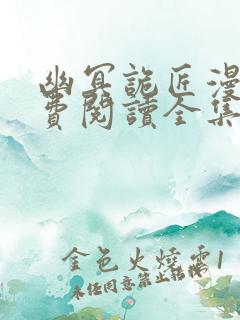 幽冥詭匠漫
費閱讀全集
金色火燒雲1
未经同意禁止转载